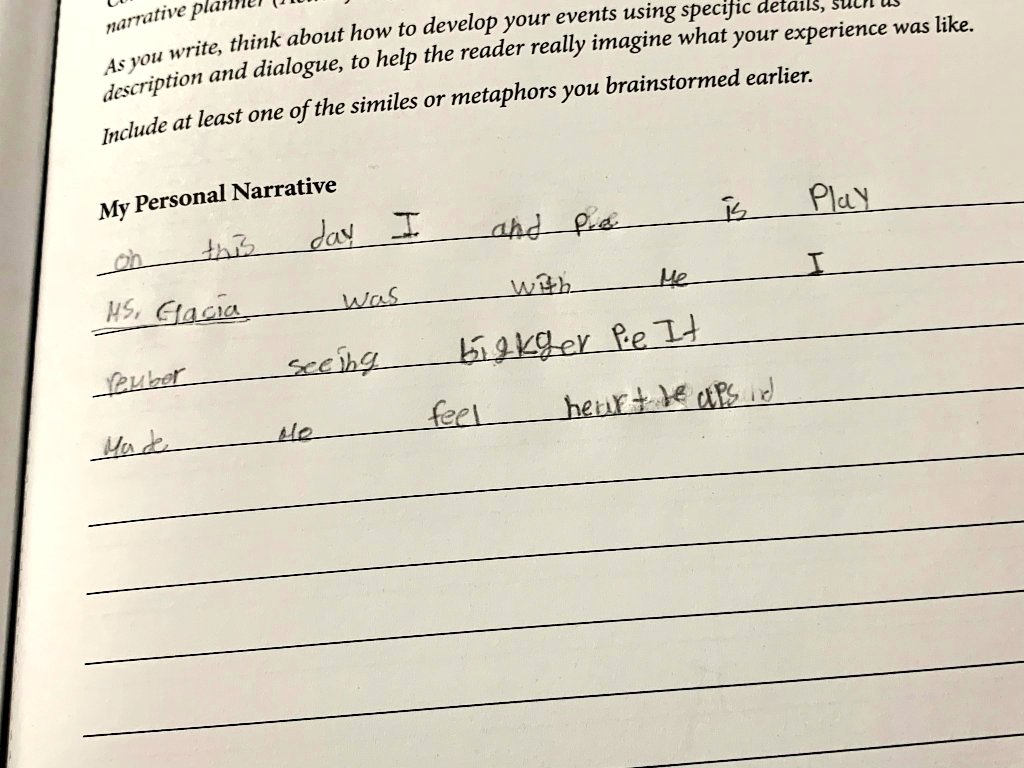 narrative planner
As you write, think about how to develop your events using specific details, such as
description and dialogue, to help the reader really imagine what your experience was like.
Include at least one of the similes or metaphors you brainstormed earlier.
My Personal Narrative
on this day I and is Play
MS. Glacia was with Me I
reubor seeing bigkger Pe It
Made Me feel heart